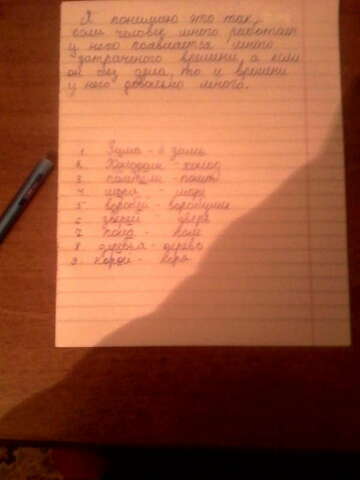 Я понимаю это так,
если человек много работает
у него появляется много
затраченого времени, а если
он без дела, то и времени
у него довольно много.
1. Зима -
2. холод
3.
4. моря - море
5. воробей - воробушки
6. зверей - звери
7. поля - поле
8. деревья - дерево
9. корой - кора